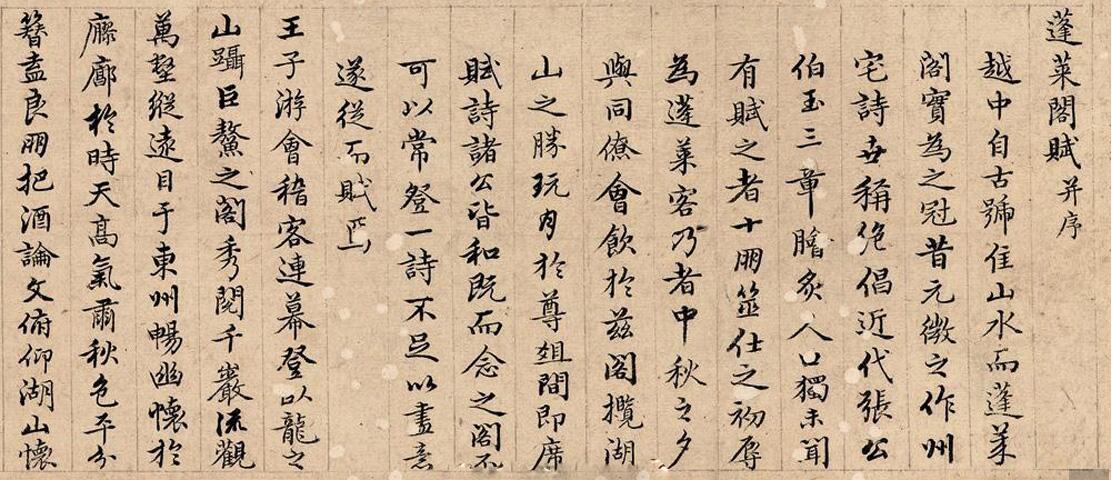 蓬萊閣賦 并序
越中自古號佳山水而蓬萊
閣實為之冠昔元微之作州
宅詩世稱絕倡近代張公
伯玉三章膾炙人口獨未聞
有賦之者十朋筮仕之初辱
為蓬萊客乃者中秋之夕
與同僚會飲於茲閣攬湖
山之勝玩月於尊俎間即席
賦詩諸公皆和既而念之閣不
可以常登一詩不足以盡意
遂從而賦焉
王子游會稽客連幕登以龍之
山躡巨鰲之閣秀閱千巖流觀
萬壑縱遠目于東州暢幽懷於
廫廓於時天高氣肅秋色平分
簪盍良朋把酒論文俯仰湖山懷